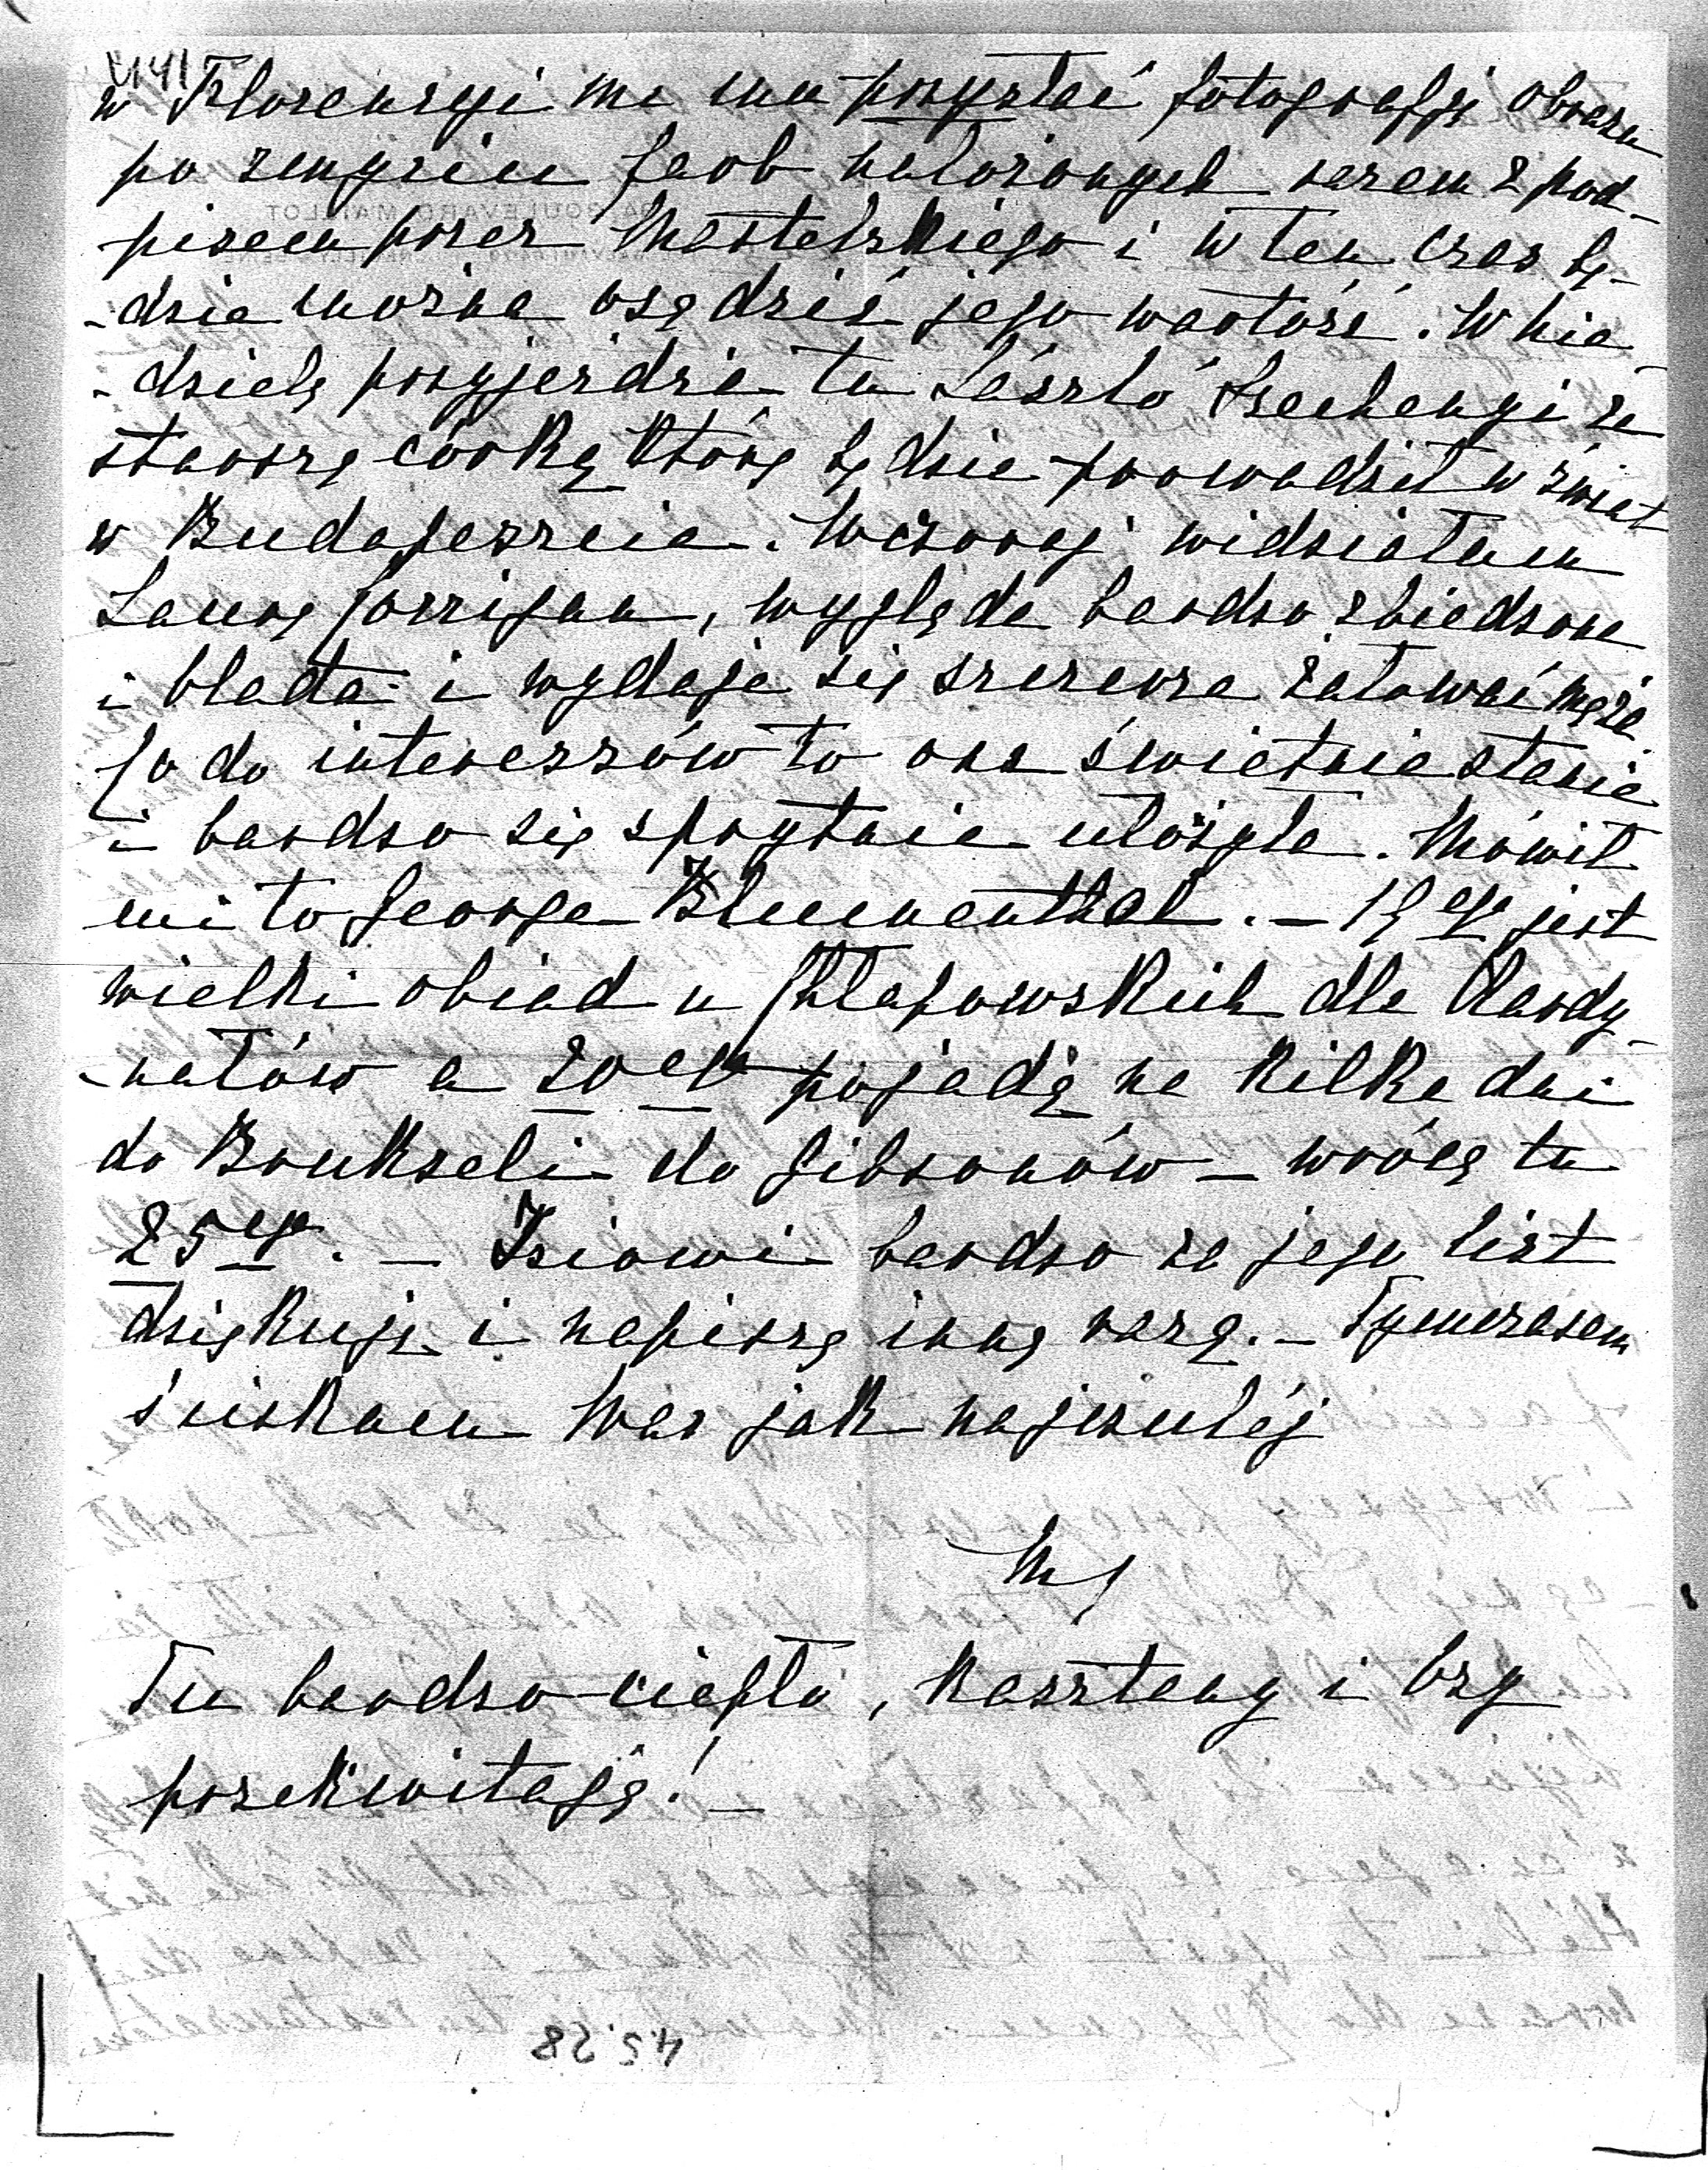 w Florencyi ma mu przysłać fotografję obrazu
po zmyciu farb nałożonych razem z pod-
pisem przez Masterskiego i w ten czas bę-
-dzie można osądzić jego wartość. W nie
-dzielę przyjeżdża tu László Szechenyi ze
starszą córką którą będzie prowadził w świat
w Budapeszcie. Wczoraj widziałam
Laurę Corrigan, wygląda bardzo zbiedzona
i blada i wydaje się szczerze żałować męża.
Co do interessów to ona świetnie stanie
i bardzo się sprytnie ułożyła. Mówił
mi to George Blumenthal. – 19go jest
wielki obiad u Chłapowskich dla Kardy
-nałów a 20go pojadę na kilka dni
do Brukseli do Gibsonów – wrócę tu
25go. – Isiowi bardzo za jego list
dziękuję i napiszę inną razą. – Tymczasem
ściskam Was jak najczulej
Tu bardzo ciepło, kasztany i bzy
przekwitają! –
4.5.28